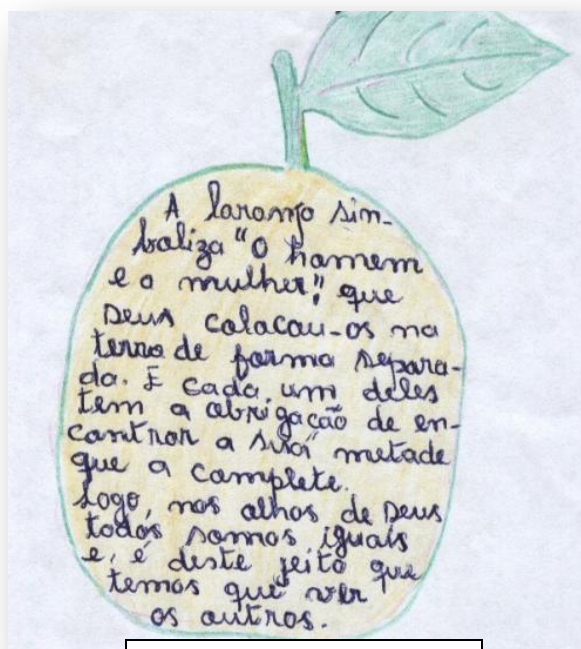 A laranja sim-
boliza "O homem
e a mulher", que
Deus colocou-os na
terra de forma separa-
da. E cada um deles
tem a obrigação de en-
contrar a sua metade
que a complete.
Logo, nos olhos de Deus
todos somos iguais
e, é deste jeito que
temos que ver
os outros.